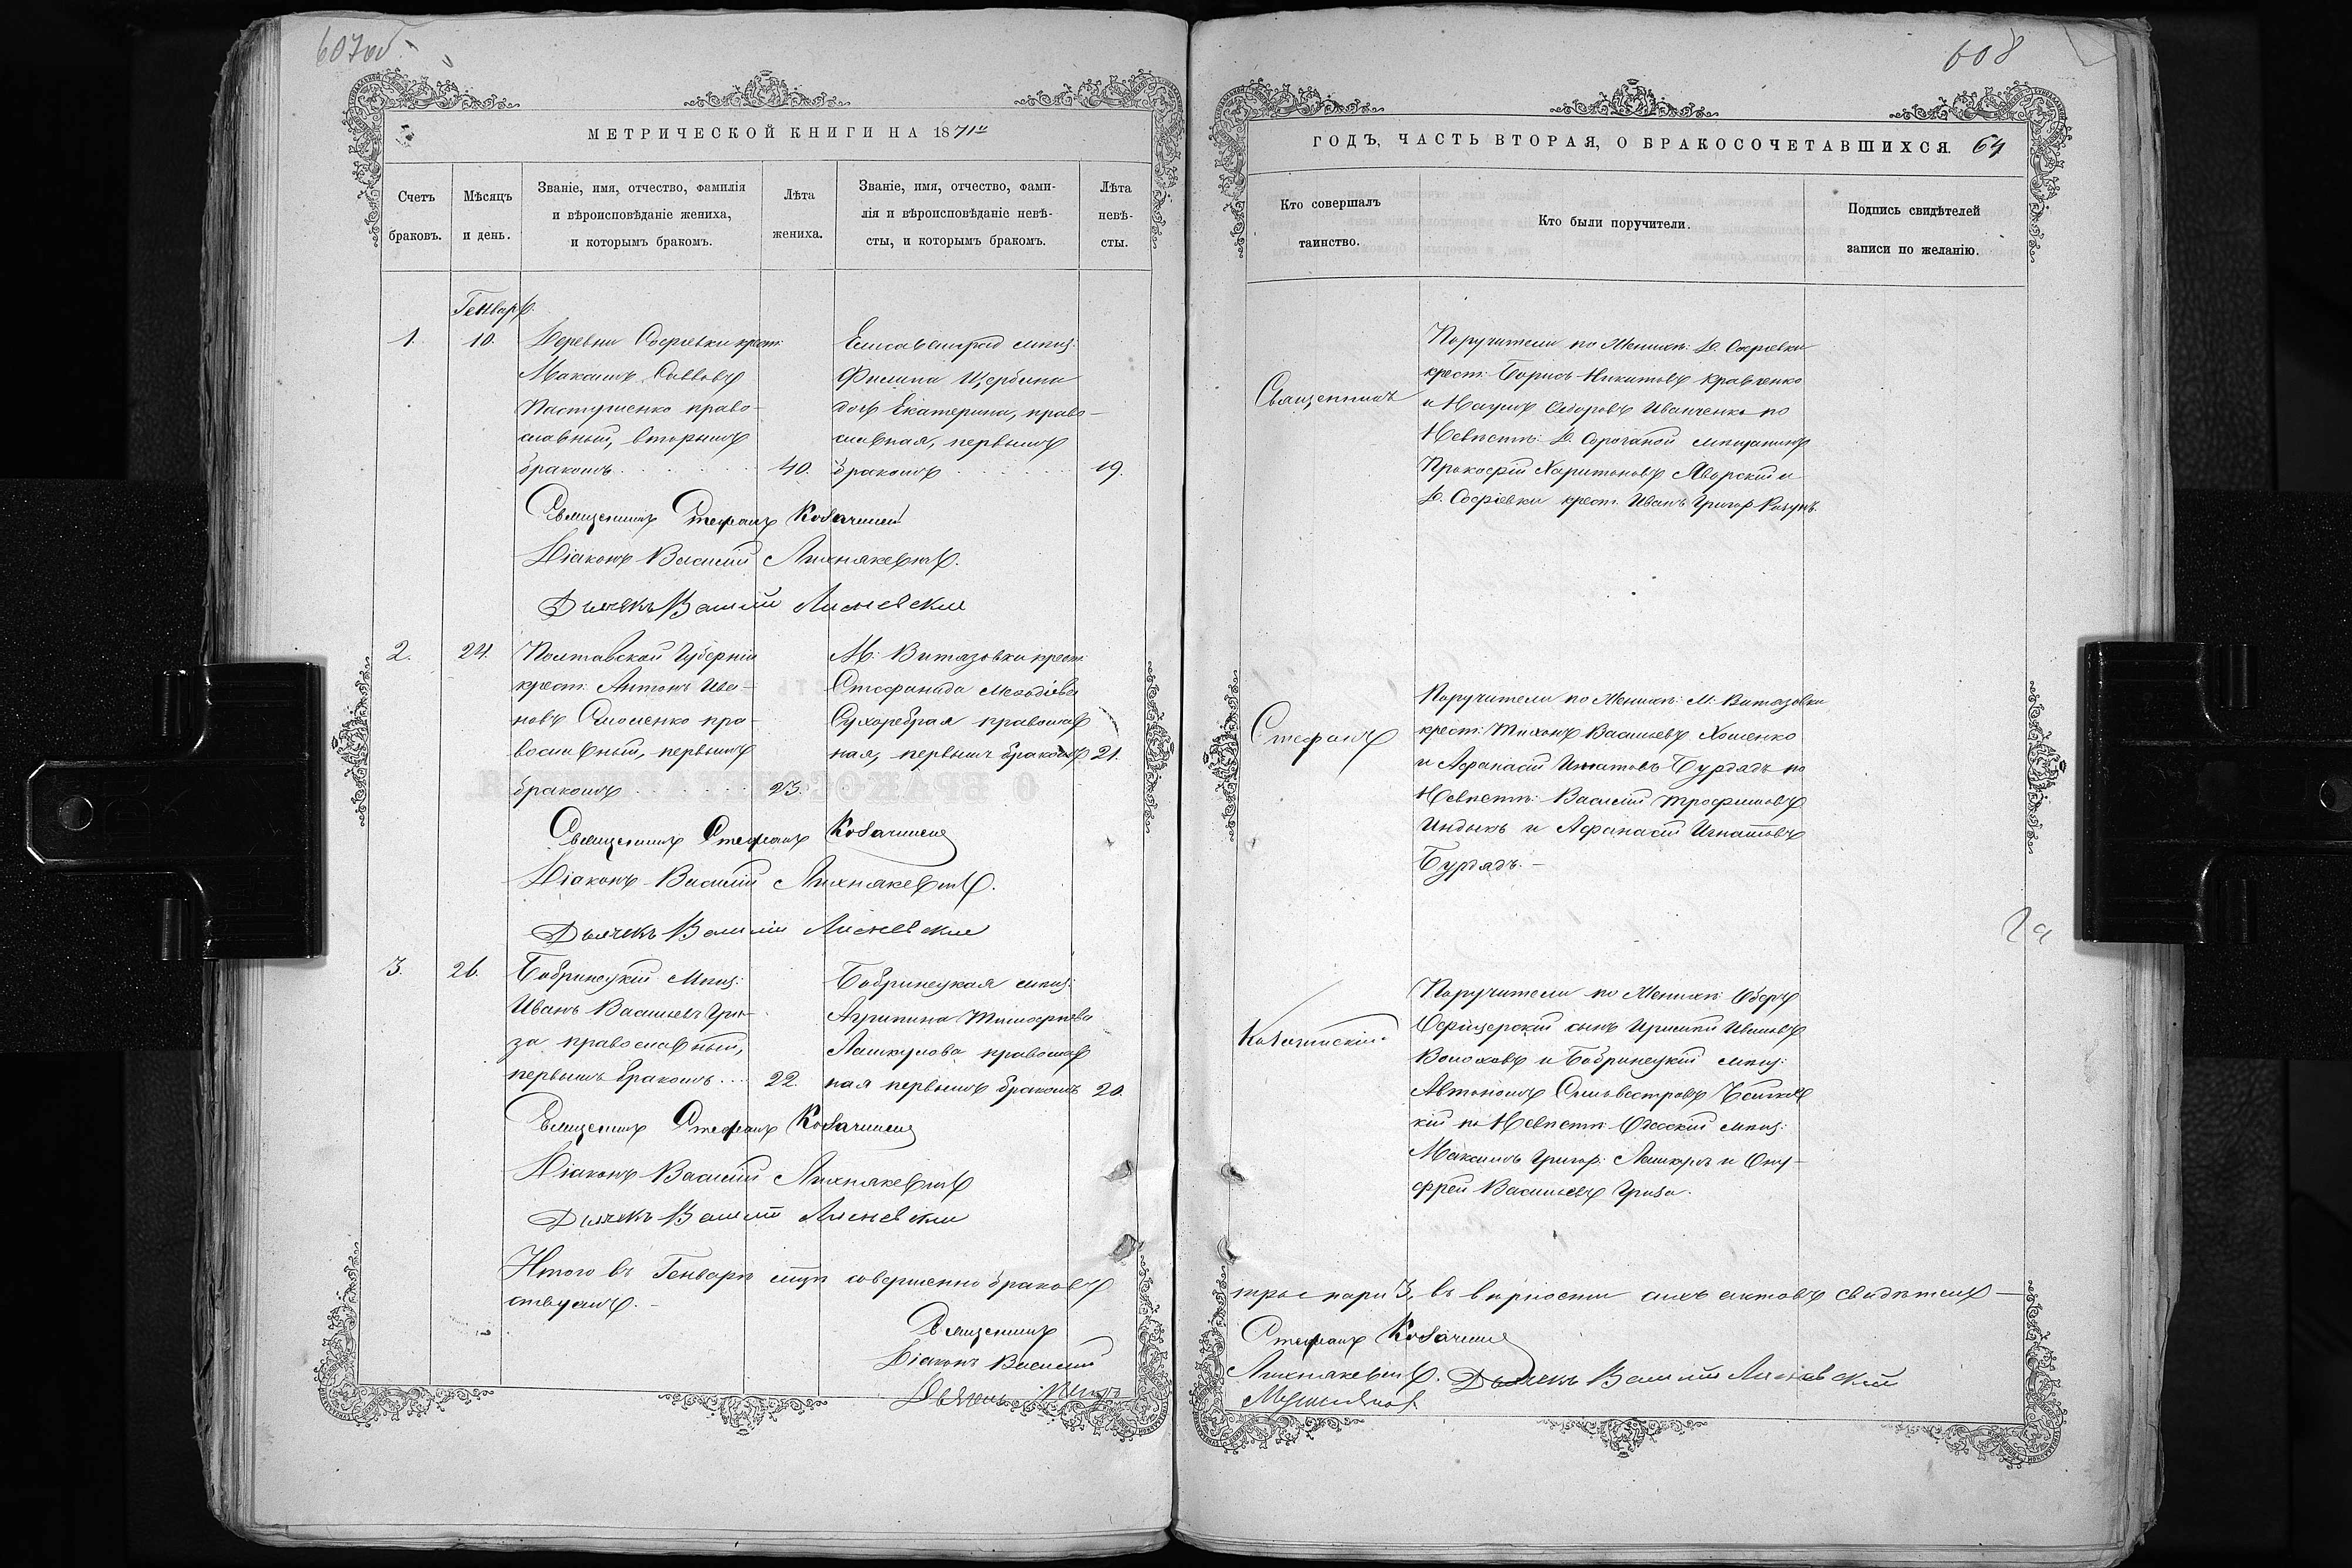 607об.
МЕТРИЧЕСКОЙ КНИГИ НА 1871й
Счетъ браковъ.
Мѣсяцъ и день.
Званіе, имя, отчество, фамилія
и вѣроисповѣданіе жениха,
и которымъ бракомъ.
Лѣта жениха.
Званіе, имя, отчество, фами-
лія и вѣроисповѣданіе невѣ-
сты, и которымъ бракомъ.
Лѣта невѣ-
сты.
Генварь.
1. 10. Деревни Софіевки крест:
Максимъ Саввовъ
Пастушенко право-
славный, вторымъ
бракомъ 40.
Елисаветград мѣщ:
Филипа Щербина
дочь Екатерина, право-
славная, первымъ
бракомъ 19.
Священникъ Стефанъ Козачинскій
Діаконъ Василій Лихнякевичъ.
Дьячекъ Василій Лисневскій
2. 24. Полтавской Губерніи
крест: Антонъ Ива-
новъ Симоненко пра-
вославный, первымъ
бракомъ 23.
М: Витязовки крест:
Стефанида Меѳодіева
Сухоребрая православ
ная, первымъ бракомъ 21.
Священникъ Стефанъ Козачинскій
Діаконъ Василій Лихнякевичъ.
Дьячекъ Василій Лисневскій
3. 26. Бобринецкій Мѣщ:
Иванъ Васильевъ Гри-
за православный,
первымъ бракомъ... 22.
Бобринецкая мѣщ:
Агрипина Тимофѣева
Лашкулова православ
ная первымъ бракомъ 20.
Священникъ Стефанъ Козачинскій
Діаконъ Василій Лихнякевичъ
Дьячекъ Василій Лисневскій
Итого въ Генварѣ мцѣ совершенно браковъ
Священникъ
Діаконъ Василій
608
ГОДЪ, ЧАСТЬ ВТОРАЯ, О БРАКОСОЧЕТАВШИХСЯ. 64
Кто совершалъ
таинство.
Кто были поручители.
Подпись свидѣтелей
записи по желанію.
Священникъ
Стефанъ
Козачинскій.
Поручители по Женихѣ: Д. Софіевки
крест: Борисъ Никитовъ Кравченко
и Наумъ Сидоровъ Иванченко по
Невѣстѣ: Д. Сорочаной мѣщанинъ
Прокофій Харитоновъ Яворскій и
Д. Софіевки крест. Иванъ Григор
Поручители по Женихѣ: М: Витязовки
крест: Тихонъ Васильевъ Хоменко
и Афанасій Игнатовъ Бурдядъ по
Невѣстѣ: Василій Трофимовъ
Индыкъ и Афанасій Игнатовъ
Бурдядъ. -
Поручители по Женихѣ: Оберъ
Офицерскій сынъ Ивановъ
Волоховъ и Бобринецкій мѣщ:
Автономъ Сильвестровъ
кій по Невѣстѣ: Одесскій мѣщ:
Максимъ Григор: Лашкулъ и Ону-
фрей Васильевъ Гриза.
три пари 3, въ вѣрности сихъ актовъ свидѣтель-
Стефанъ Козачинскій
Лихнякевичъ. Дьячекъ Василій Лисневскій